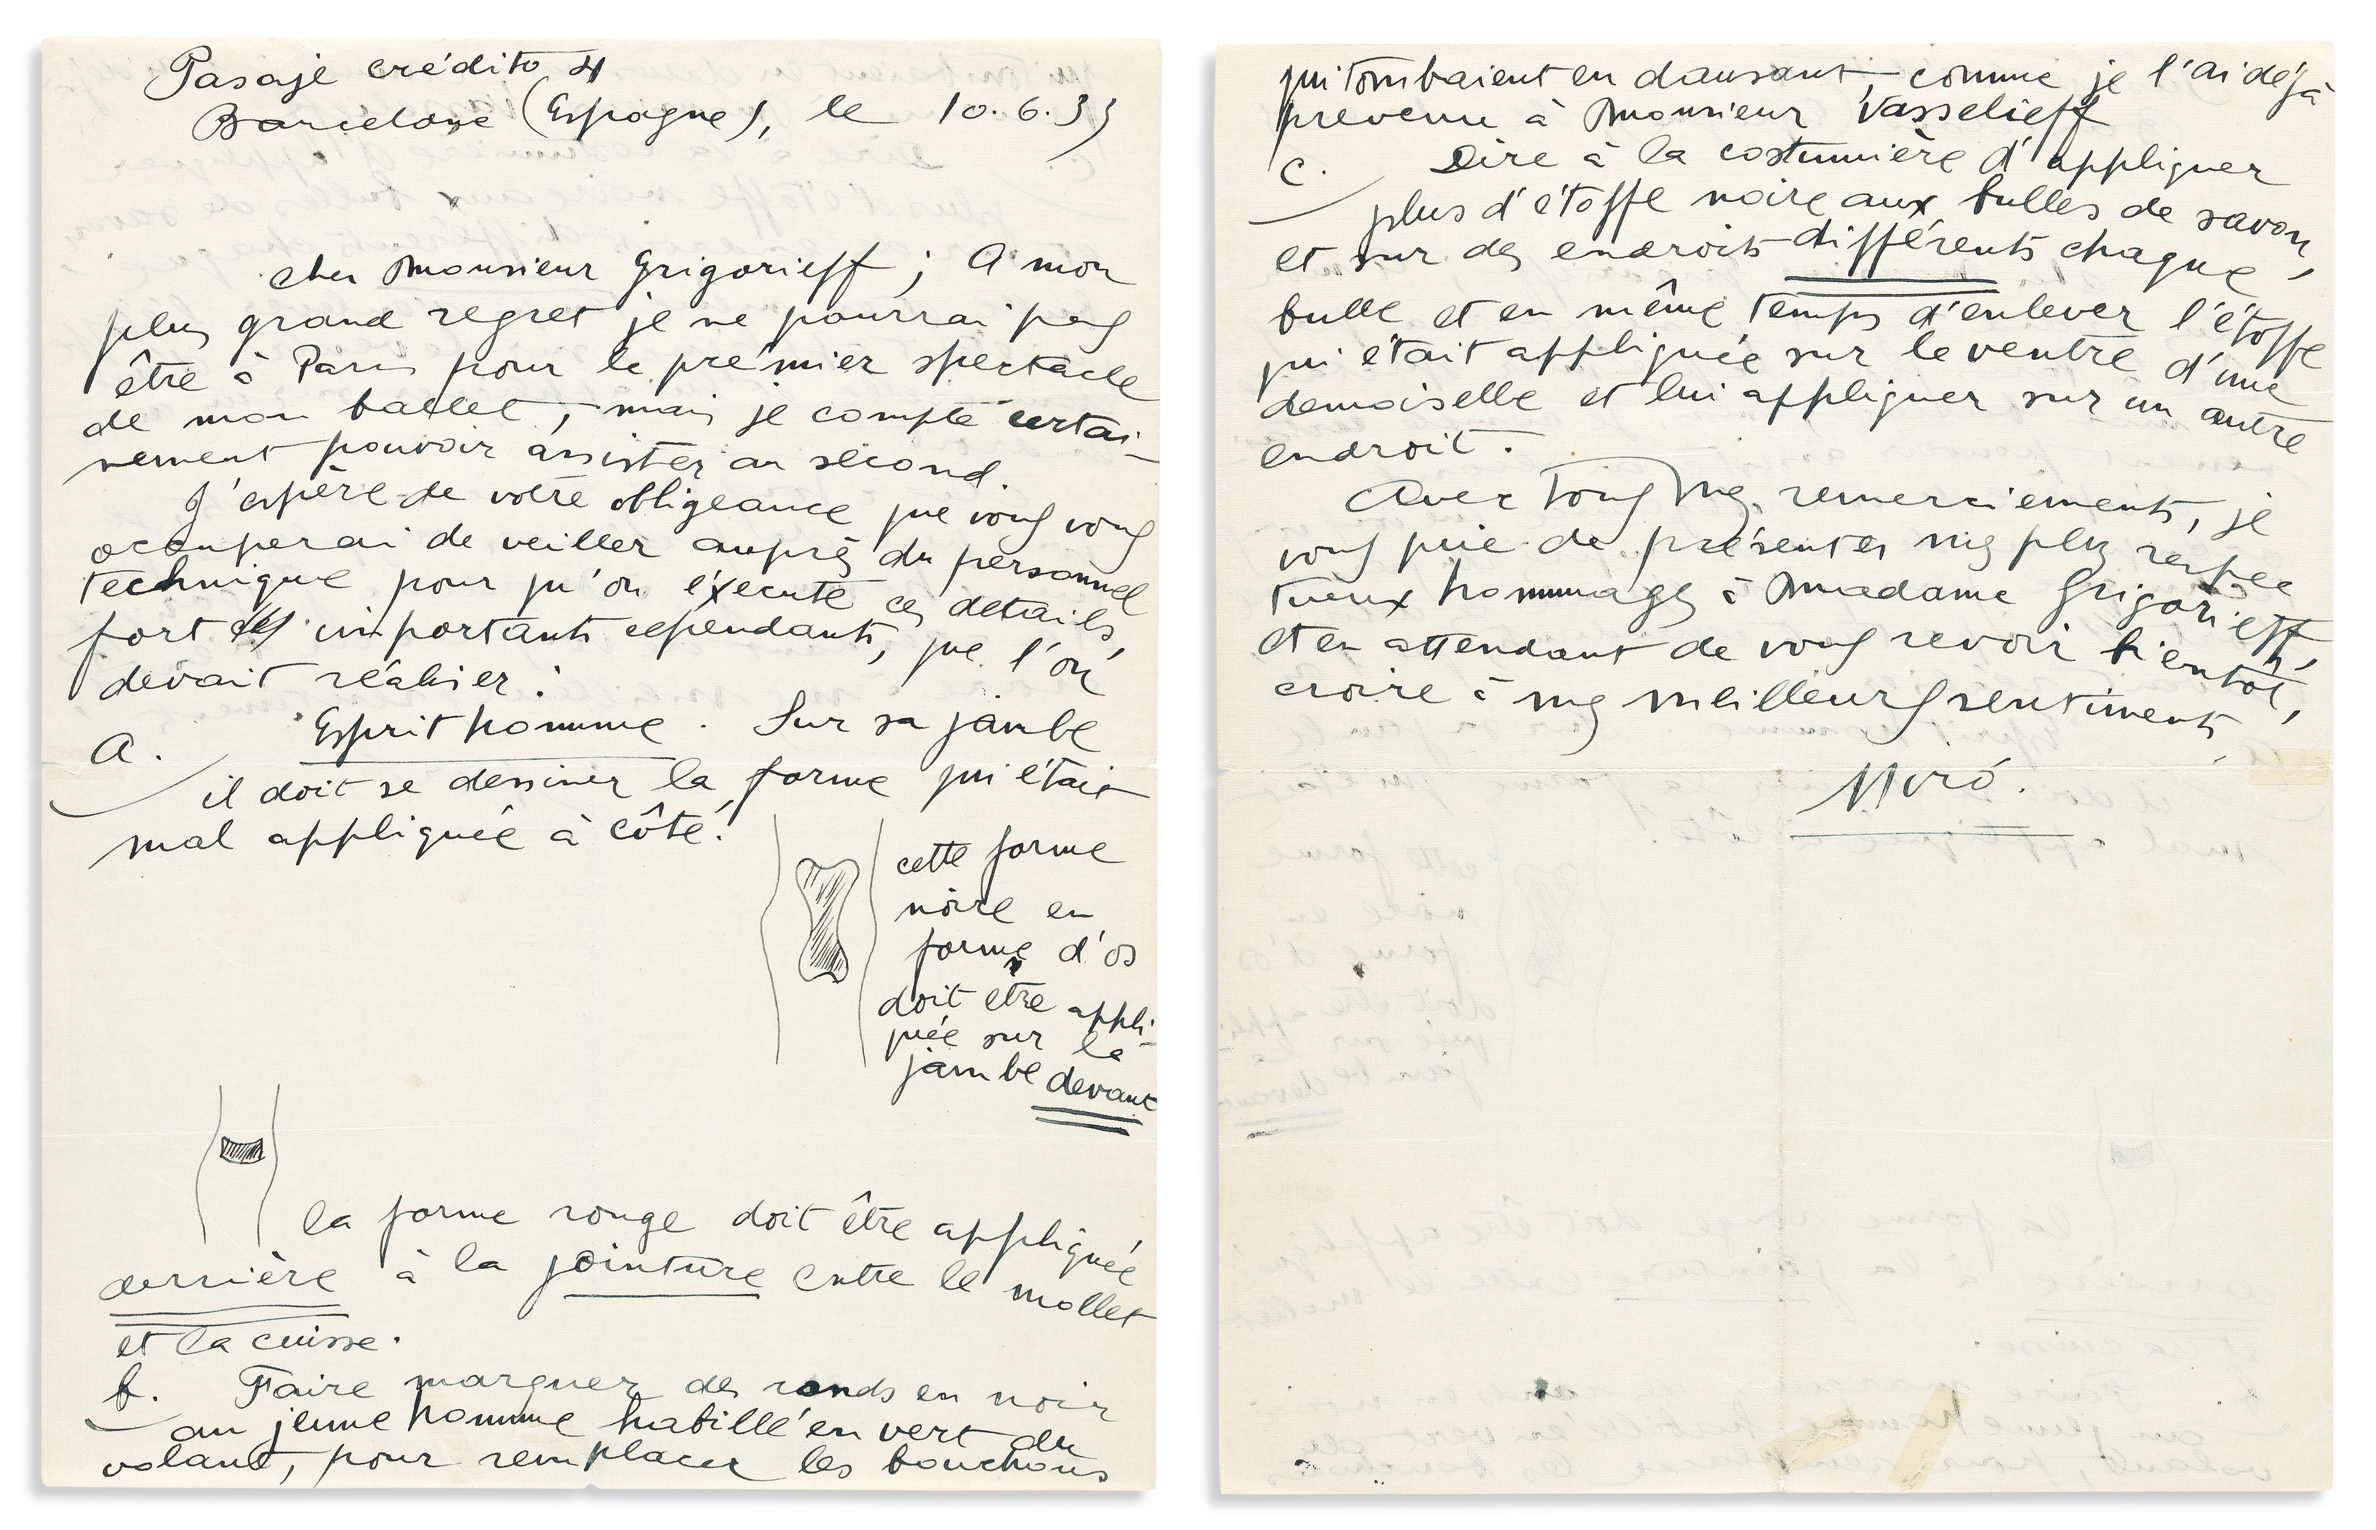 Pasaje crédito 4
Barcelone (Espagne), le 10.6.33
cher Monsieur Grigorieff ; A mon
plus grand regret je ne pourrai pas
être à Paris pour le prémier spectacle
de mon ballet, mais je compte certai-
nement pouvoir assister au sécond.
J'espère de votre obligeance que vous vous
occuperai de veiller auprès du personnel
technique pour qu'on éxecute ces details,
fort importants cependants, que l'on
devait réaliser :
A. Esprit homme . Sur sa jambe
il doit se dessiner la forme qui était
mal appliquée à côté.
cette forme
noire en
forme d'os
doit être appli-
quée sur la
jambe devant
la forme rouge doit être appliquée
derrière à la jointure entre le mollet
et la cuisse.
b. Faire marquer des ronds en noir
au jeune homme habillé en vert du
volant, pour remplacer les bouchons
qui tombaient en dansant, comme je l'ai déjà
prevenu à Monsieur Vasselieff
C. Dire à la costumière d'appliquer
plus d'étoffe noire aux bulles de savon,
et sur des endroits différents chaque
bulle et en même temps d'enlever l'étoffe
qui était appliquée sur le ventre d'une
demoiselle et lui appliquer sur un autre
endroit.
Avec tous mes remerciements, je
vous prie de présenter mes plus respec
tueux hommages à Madame Grigorieff,
et en attendant de vous revoir bientôt,
croire à mes meilleurs sentiments
Miró.